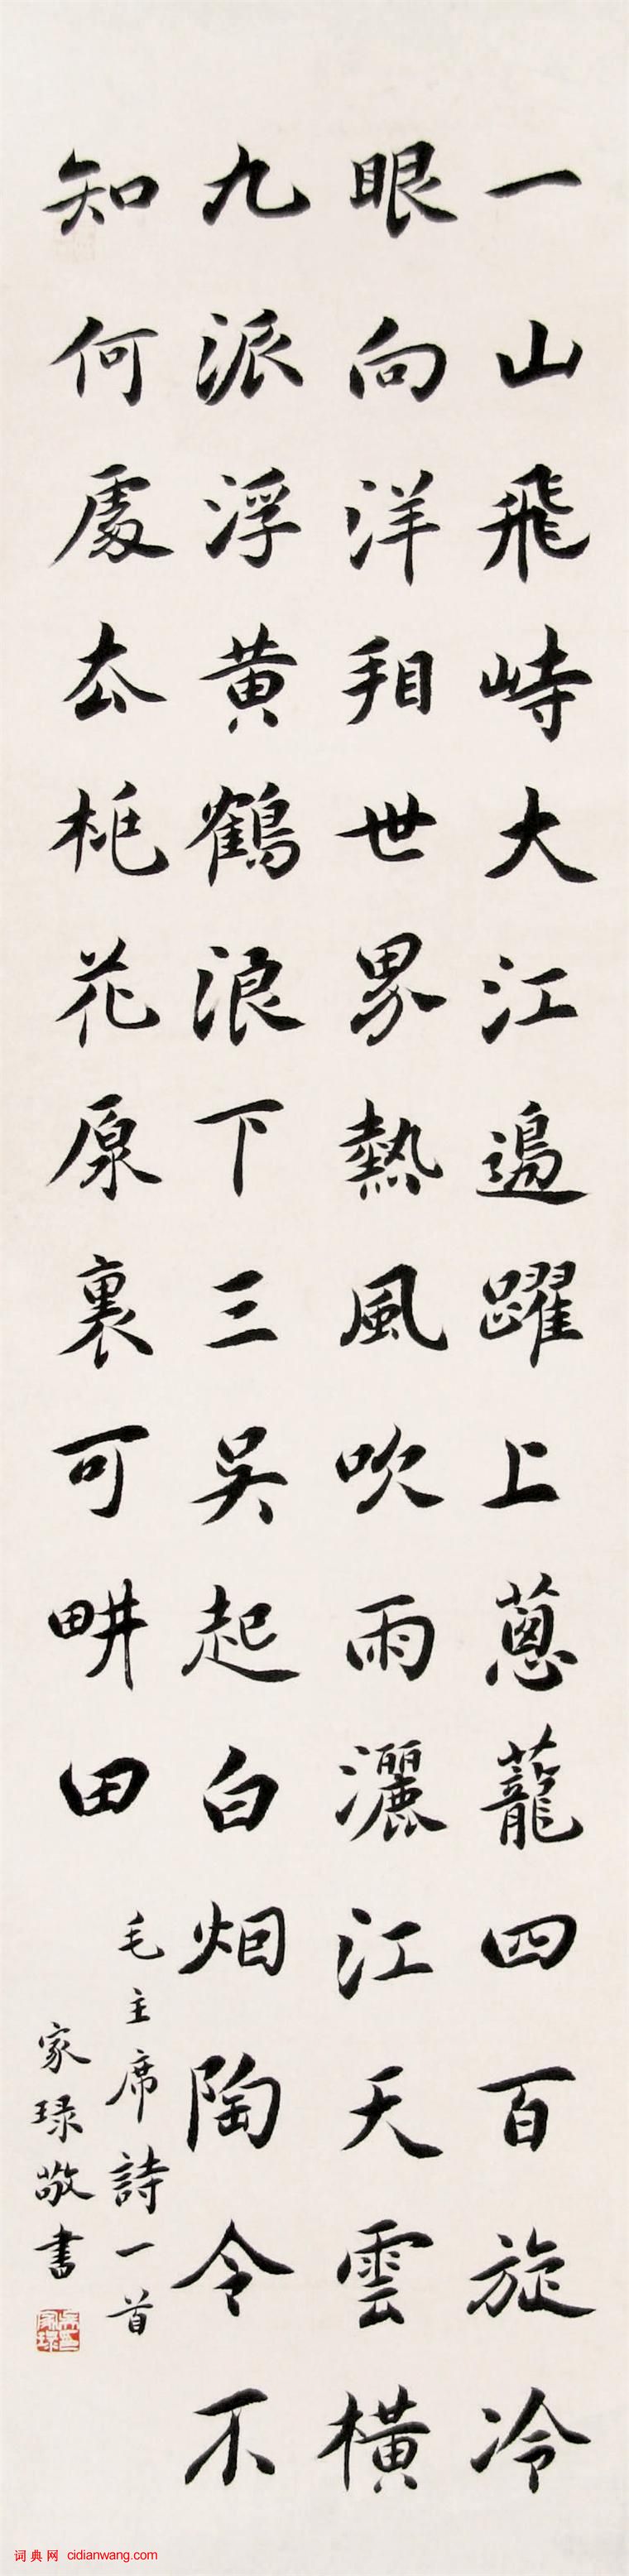 一山飛峙大江邊躍上蔥蘢四百旋冷
眼向洋看世界熱風吹雨灑江天雲橫
九派浮黃鶴浪下三吳起白烟陶令不
知何處去桃花源裏可畊田
毛主席詩一首
家琭敬書
词典网 cidianwang.com